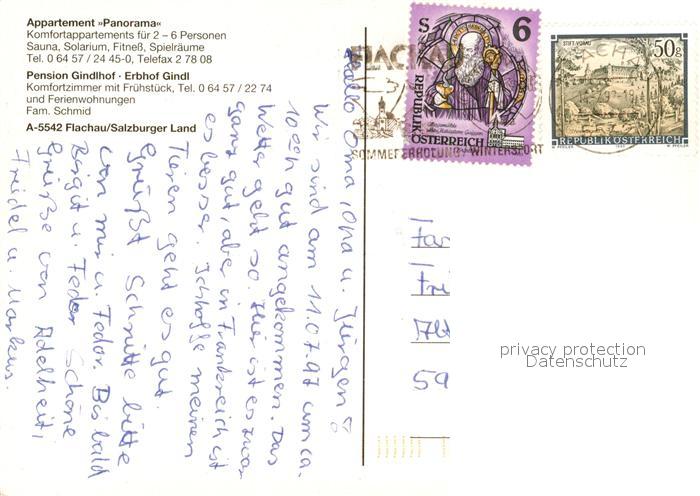 Appartement »Panorama«
Komfortappartements für 2 – 6 Personen
Sauna, Solarium, Fitneß, Spielräume
Tel. 0 64 57 / 24 45-0, Telefax 2 78 08
Pension Gindlhof · Erbhof Gindl
Komfortzimmer mit Frühstück, Tel. 0 64 57 / 22 74
und Ferienwohnungen
Fam. Schmid
A-5542 Flachau/Salzburger Land
Hallo Oma, Opa u. Jürgen
Wir sind am 11.07.97 um ca.
10 Uhr gut angekommen. Das
Wetter geht so. Hier ist es zwar
ganz gut, aber in Frankreich ist
es besser. Ich hoffe meinen
Tieren geht es gut.
Grüßt Schnitte bitte
von mir u. Fedor. Bis bald
Birgit u. Fedor Schöne
Grüße von Adelheit,
Friedel u. Markus.
S 6
REPUBLIK
ÖSTERREICH
STIFT VORAU
50g
REPUBLIK ÖSTERREICH
FLACHAU
SOMMERERHOLUNG WINTERSPORT
Fa
Fri
Alt
59
privacy protection
Datenschutz